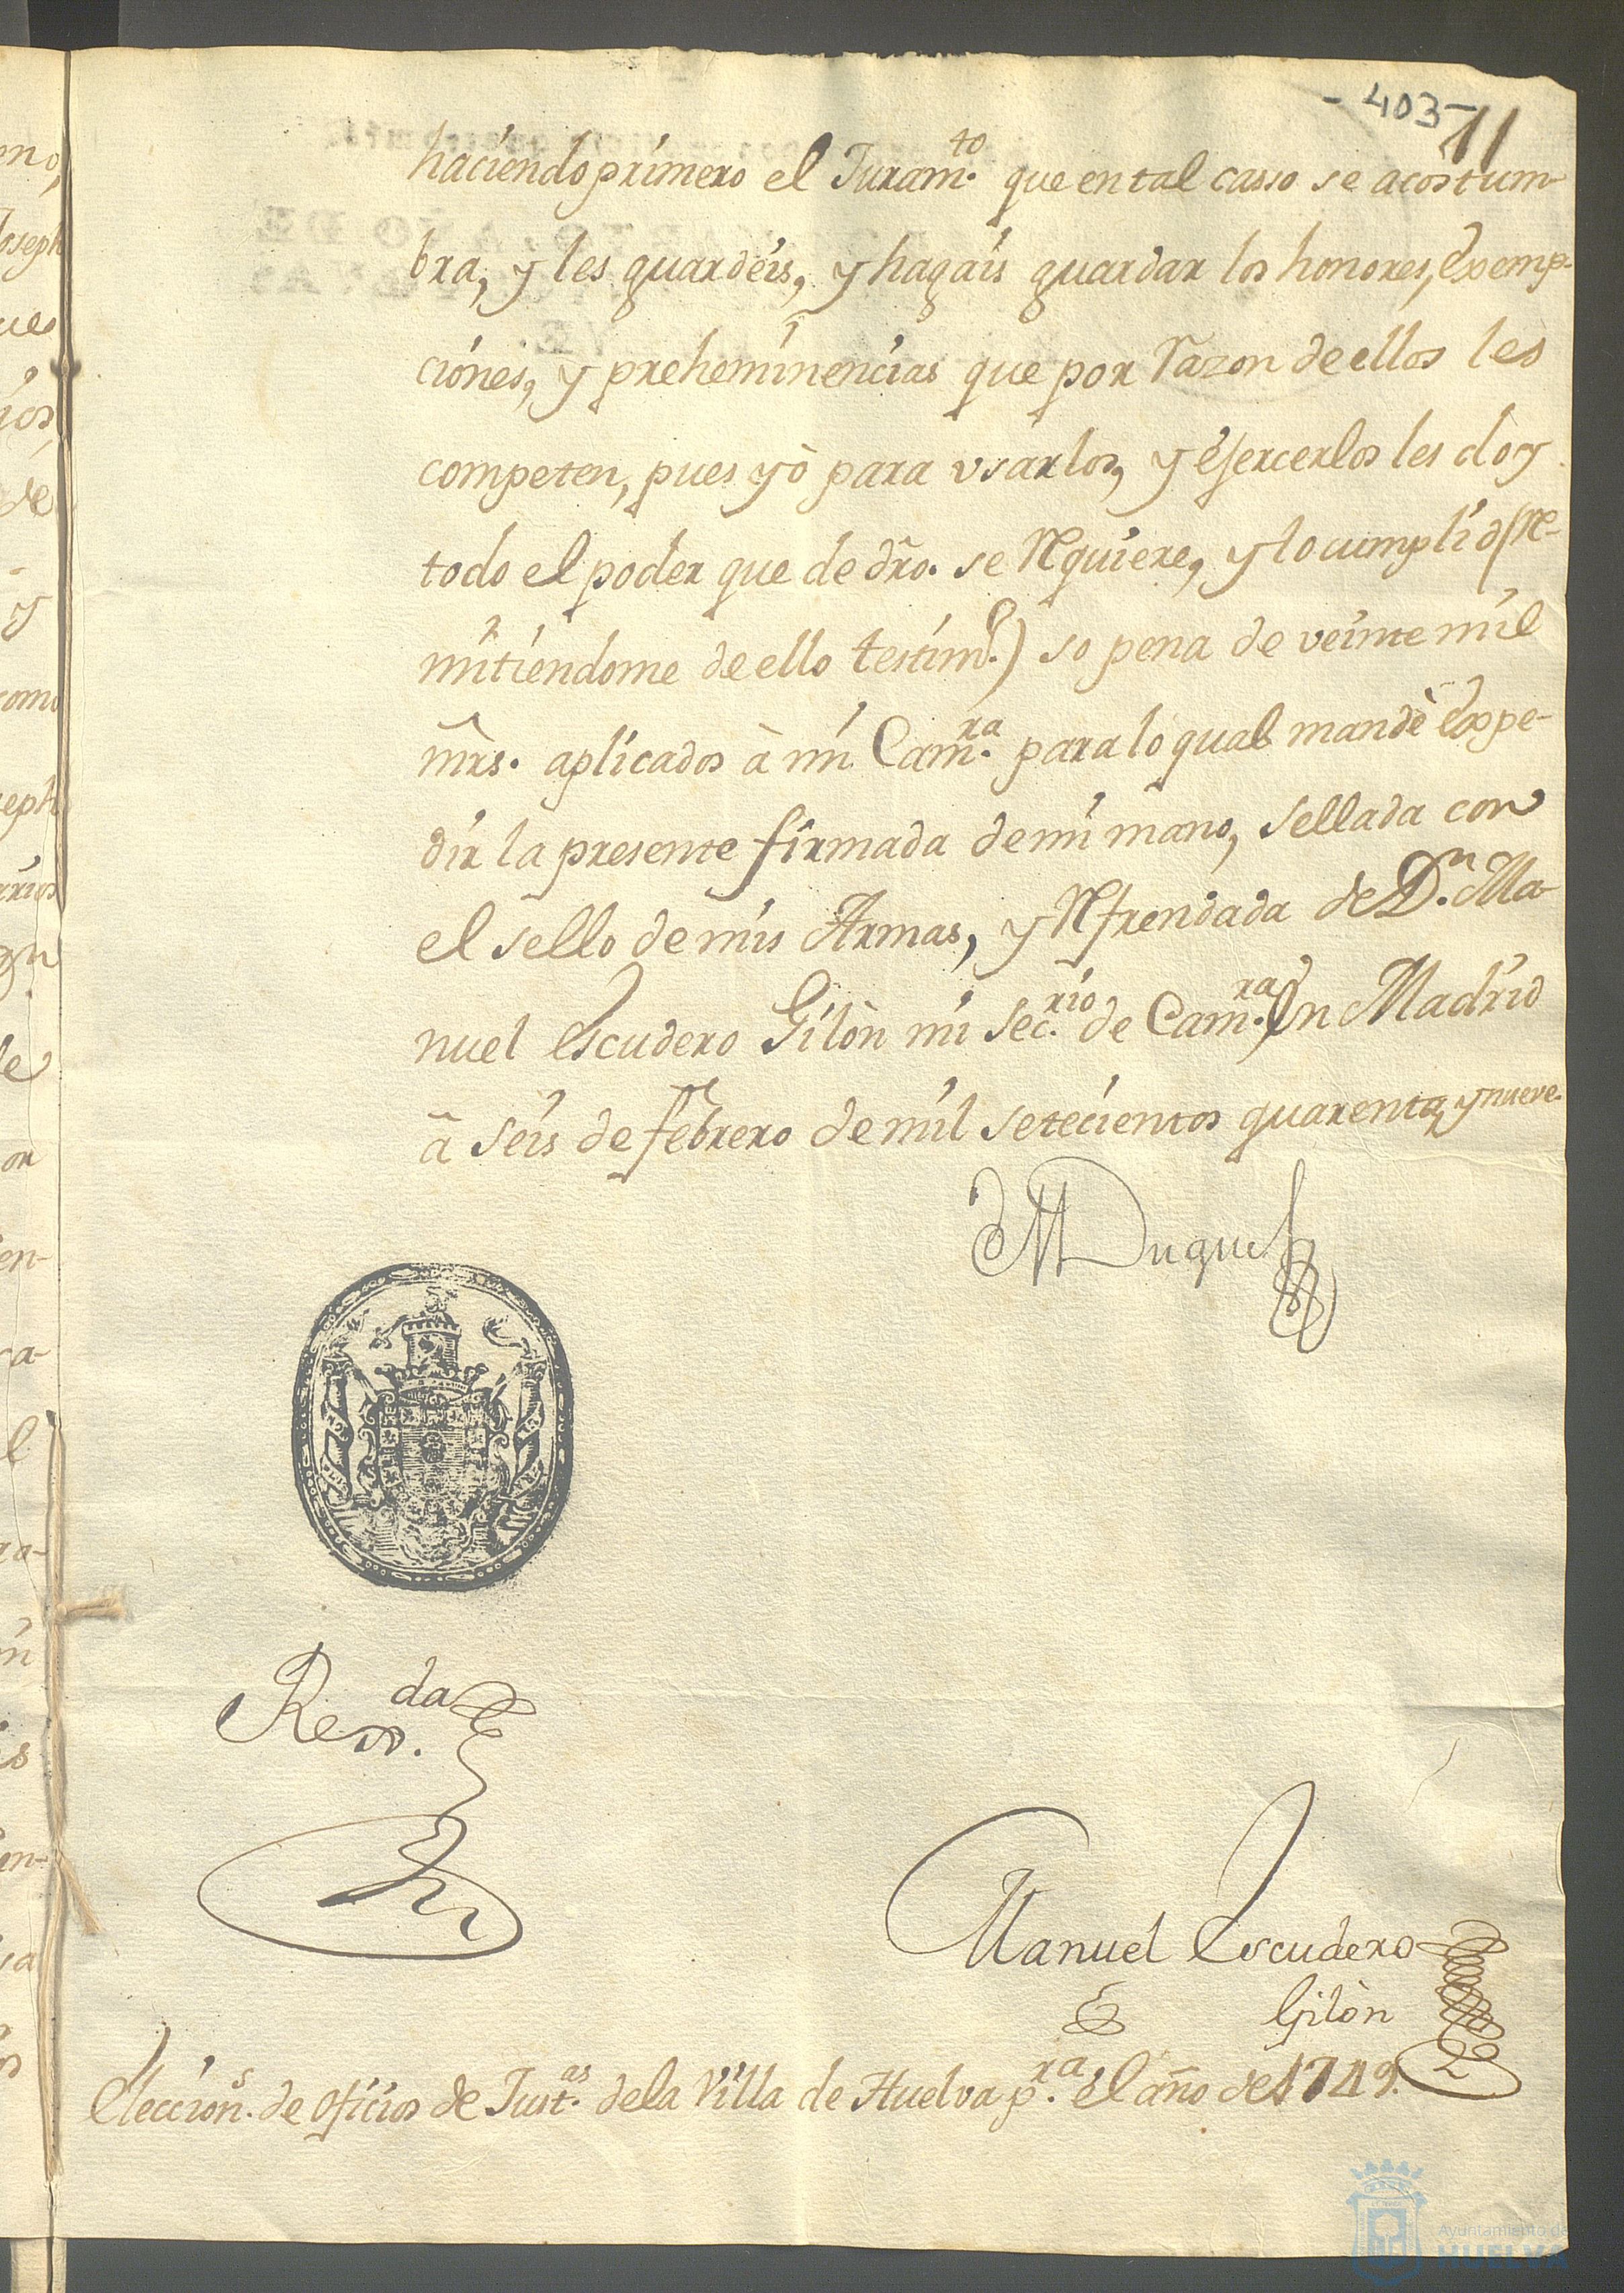 - 403 -
11
haciendo primero el Juram.to que en tal casso se acostum-
bra, y les guardéis, y hagáis guardar los honores, exemp-
ciones, y preheminencias que por razon de ellos les
competen, pues yò para vsarlos, y ejercerlos les doy
todo el poder que de dro. se requiere, y lo cumplid (re-
mitiendome de ello testim.o) so pena de veinte mil
mrs. aplicados à mi Cam.ra para lo qual mandè expe-
dir la presente firmada de mi mano, sellada con
el sello de mis Armas, y refrendada de D.n Ma-
nuel Escudero Gilòn mi Sec.rio de Cam.ra En Madrid
à seis de febrero de mil setecientos quarenta, y nueve.
Duque
Rexx.da
Manuel Escudero
Gilòn
Eleccion.s de oficios de Just.as de la Villa de Huelva p.ra el año de 1749.
Ayuntamiento de
HUELVA